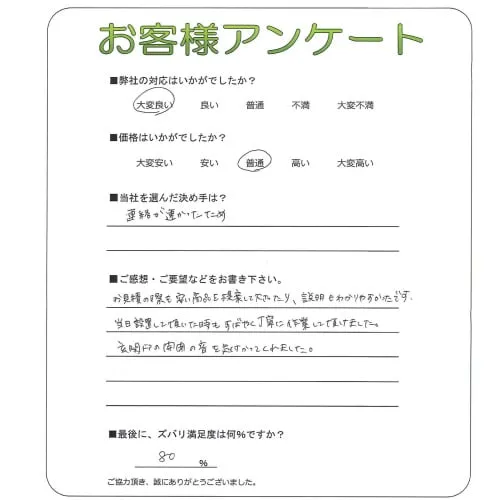 お客様アンケート
■弊社の対応はいかがでしたか?
大変良い 良い 普通 不満 大変不満
■価格はいかがでしたか?
大変安い 安い 普通 高い 大変高い
■当社を選んだ決め手は?
連絡が速かったため
■ご感想・ご要望などをお書き下さい。
お見積の際も安い商品を提案して下さったり、説明もわかりやすかったです。
当日設置して頂いた時もすばやく丁寧に作業して頂けました。
玄関の周囲の音を気付かってくれました。
■最後に、ズバリ満足度は何%ですか?
80 %
ご協力頂き、誠にありがとうございました。